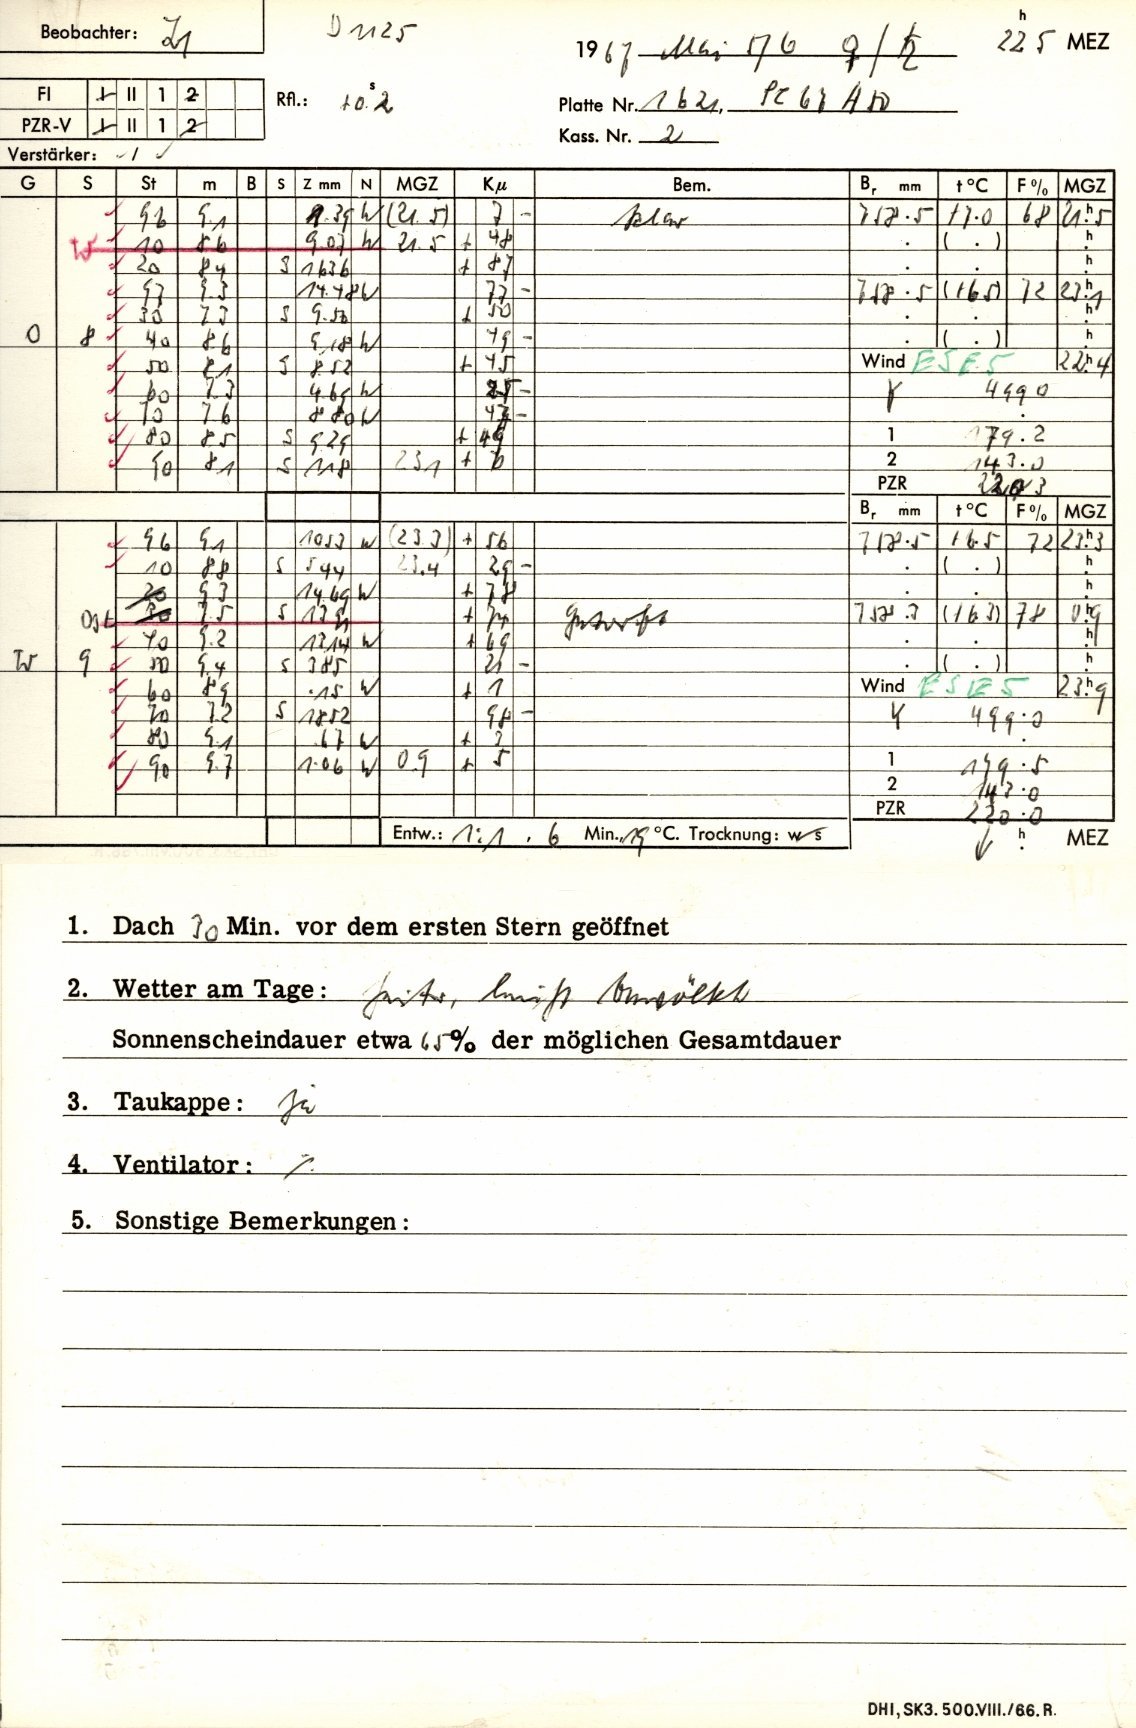 Beobachter:
D 1125
1967 Mai 5/6 ♀/♄ 22h 5 MEZ
FI I II 1 2
Rfl.: +0.s2
Platte Nr. 1621, PZ 67 A 50
PZR-V I II 1 2
Kass. Nr. 2
Verstärker: ✓ / ✓
G S St m B S Z mm N MGZ Kμ Bem. Br mm t °C F % MGZ
96 9.1 W (21.5) 7 - klar 758.5 17.0 68 21.h5
W 10 8.6 9.07 W 21.5 + 48 . ( . ) h
20 8.4 S 1636 + 87 . . h
97 9.3 14.48 W 77 - 758.5 (16.5) 72 23.h1
30 7.3 S 9.50 + 50 . . h
O 8 40 8.6 9.18 W 79 - . ( . ) h
50 8.1 S 8.52 + 45 Wind ESE 5 22.h4
60 7.3 4.69 W 25 - γ 499 0
70 7.6 8 80 W 47 -
80 8.5 S 9.29 + 49 1 179.2
90 8.1 S 118 231 + 6 2 143.0
PZR 220 3
Br mm t °C F % MGZ
96 9.1 1053 W (23.3) + 56 758.5 16.5 72 23.h3
10 8.8 S 544 23.4 29 - . ( . ) h
20 9.3 14.69 W + 78 . . h
Ost 30 7.5 S + 74 758.3 (16.3) 78 0.h9
40 9.2 1314 W + 69 . . h
W 9 50 9.4 S 385 21 - . ( . ) h
60 8.9 .15 W + 1 Wind ESE 5 23.h9
70 7.2 S 1852 98 - γ 499.0
80 9.1 .67 W + 3
90 9.7 1.06 W 0.9 + 5 1 179.5
2 143.0
PZR 220.0
Entw.: 1:1, 6 Min., 19 °C. Trocknung: ws h . MEZ
1. Dach 30 Min. vor dem ersten Stern geöffnet
2. Wetter am Tage: heiter, leicht bewölkt
Sonnenscheindauer etwa 65% der möglichen Gesamtdauer
3. Taukappe: ja
4. Ventilator:
5. Sonstige Bemerkungen:
DHI, SK3. 500.VIII./66. R.